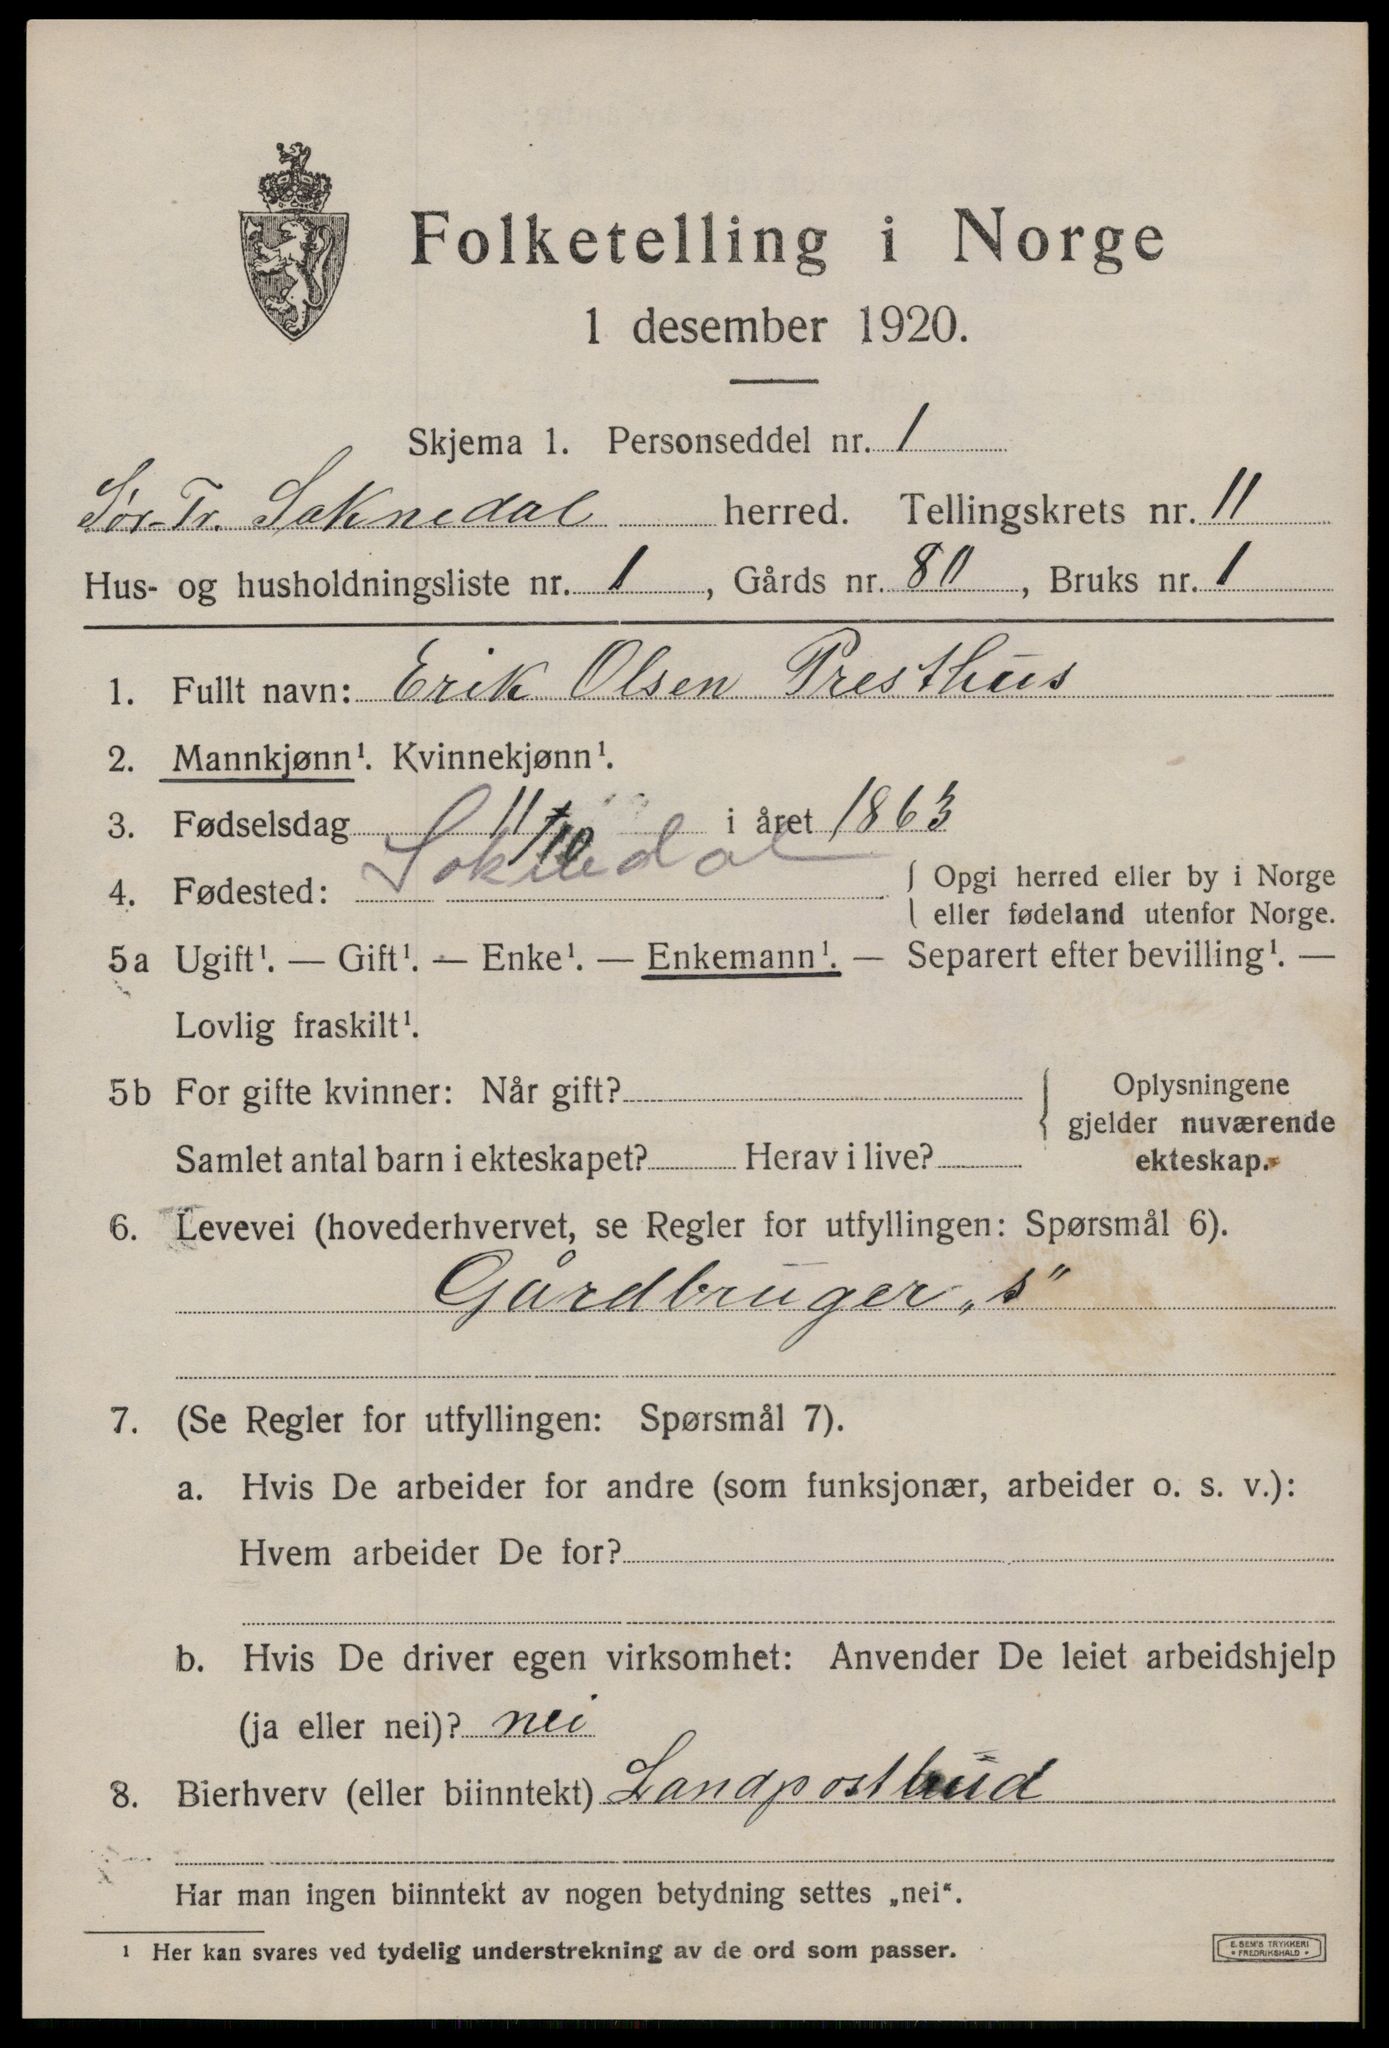 Folketelling i Norge
1 desember 1920.
Skjema 1. Personseddel nr. 1
Sør-Tr. Soknedal herred. Tellingskrets nr. 11
Hus- og husholdningsliste nr. 1, Gårds nr. 80, Bruks nr. 1
1. Fullt navn: Erik Olsen Presthus
2. Mannkjønn¹. Kvinnekjønn¹.
3. Fødselsdag 11/10 i året 1863
4. Fødested: Soknedal { Opgi herred eller by i Norge
eller fødeland utenfor Norge.
5a Ugift¹. — Gift¹. — Enke¹. — Enkemann¹. — Separert efter bevilling¹. —
Lovlig fraskilt¹.
5b For gifte kvinner: Når gift? { Oplysningene
gjelder nuværende
Samlet antal barn i ekteskapet? Herav i live? ekteskap.
6. Levevei (hovederhvervet, se Regler for utfyllingen: Spørsmål 6).
Gårdbruger „s“
7. (Se Regler for utfyllingen: Spørsmål 7).
a. Hvis De arbeider for andre (som funksjonær, arbeider o. s. v.):
Hvem arbeider De for?
b. Hvis De driver egen virksomhet: Anvender De leiet arbeidshjelp
(ja eller nei)? nei
8. Bierhverv (eller biinntekt) Landpostbud
Har man ingen biinntekt av nogen betydning settes „nei“.
¹ Her kan svares ved tydelig understrekning av de ord som passer.
E. SEM'S TRYKKERI
• FREDRIKSHALD •